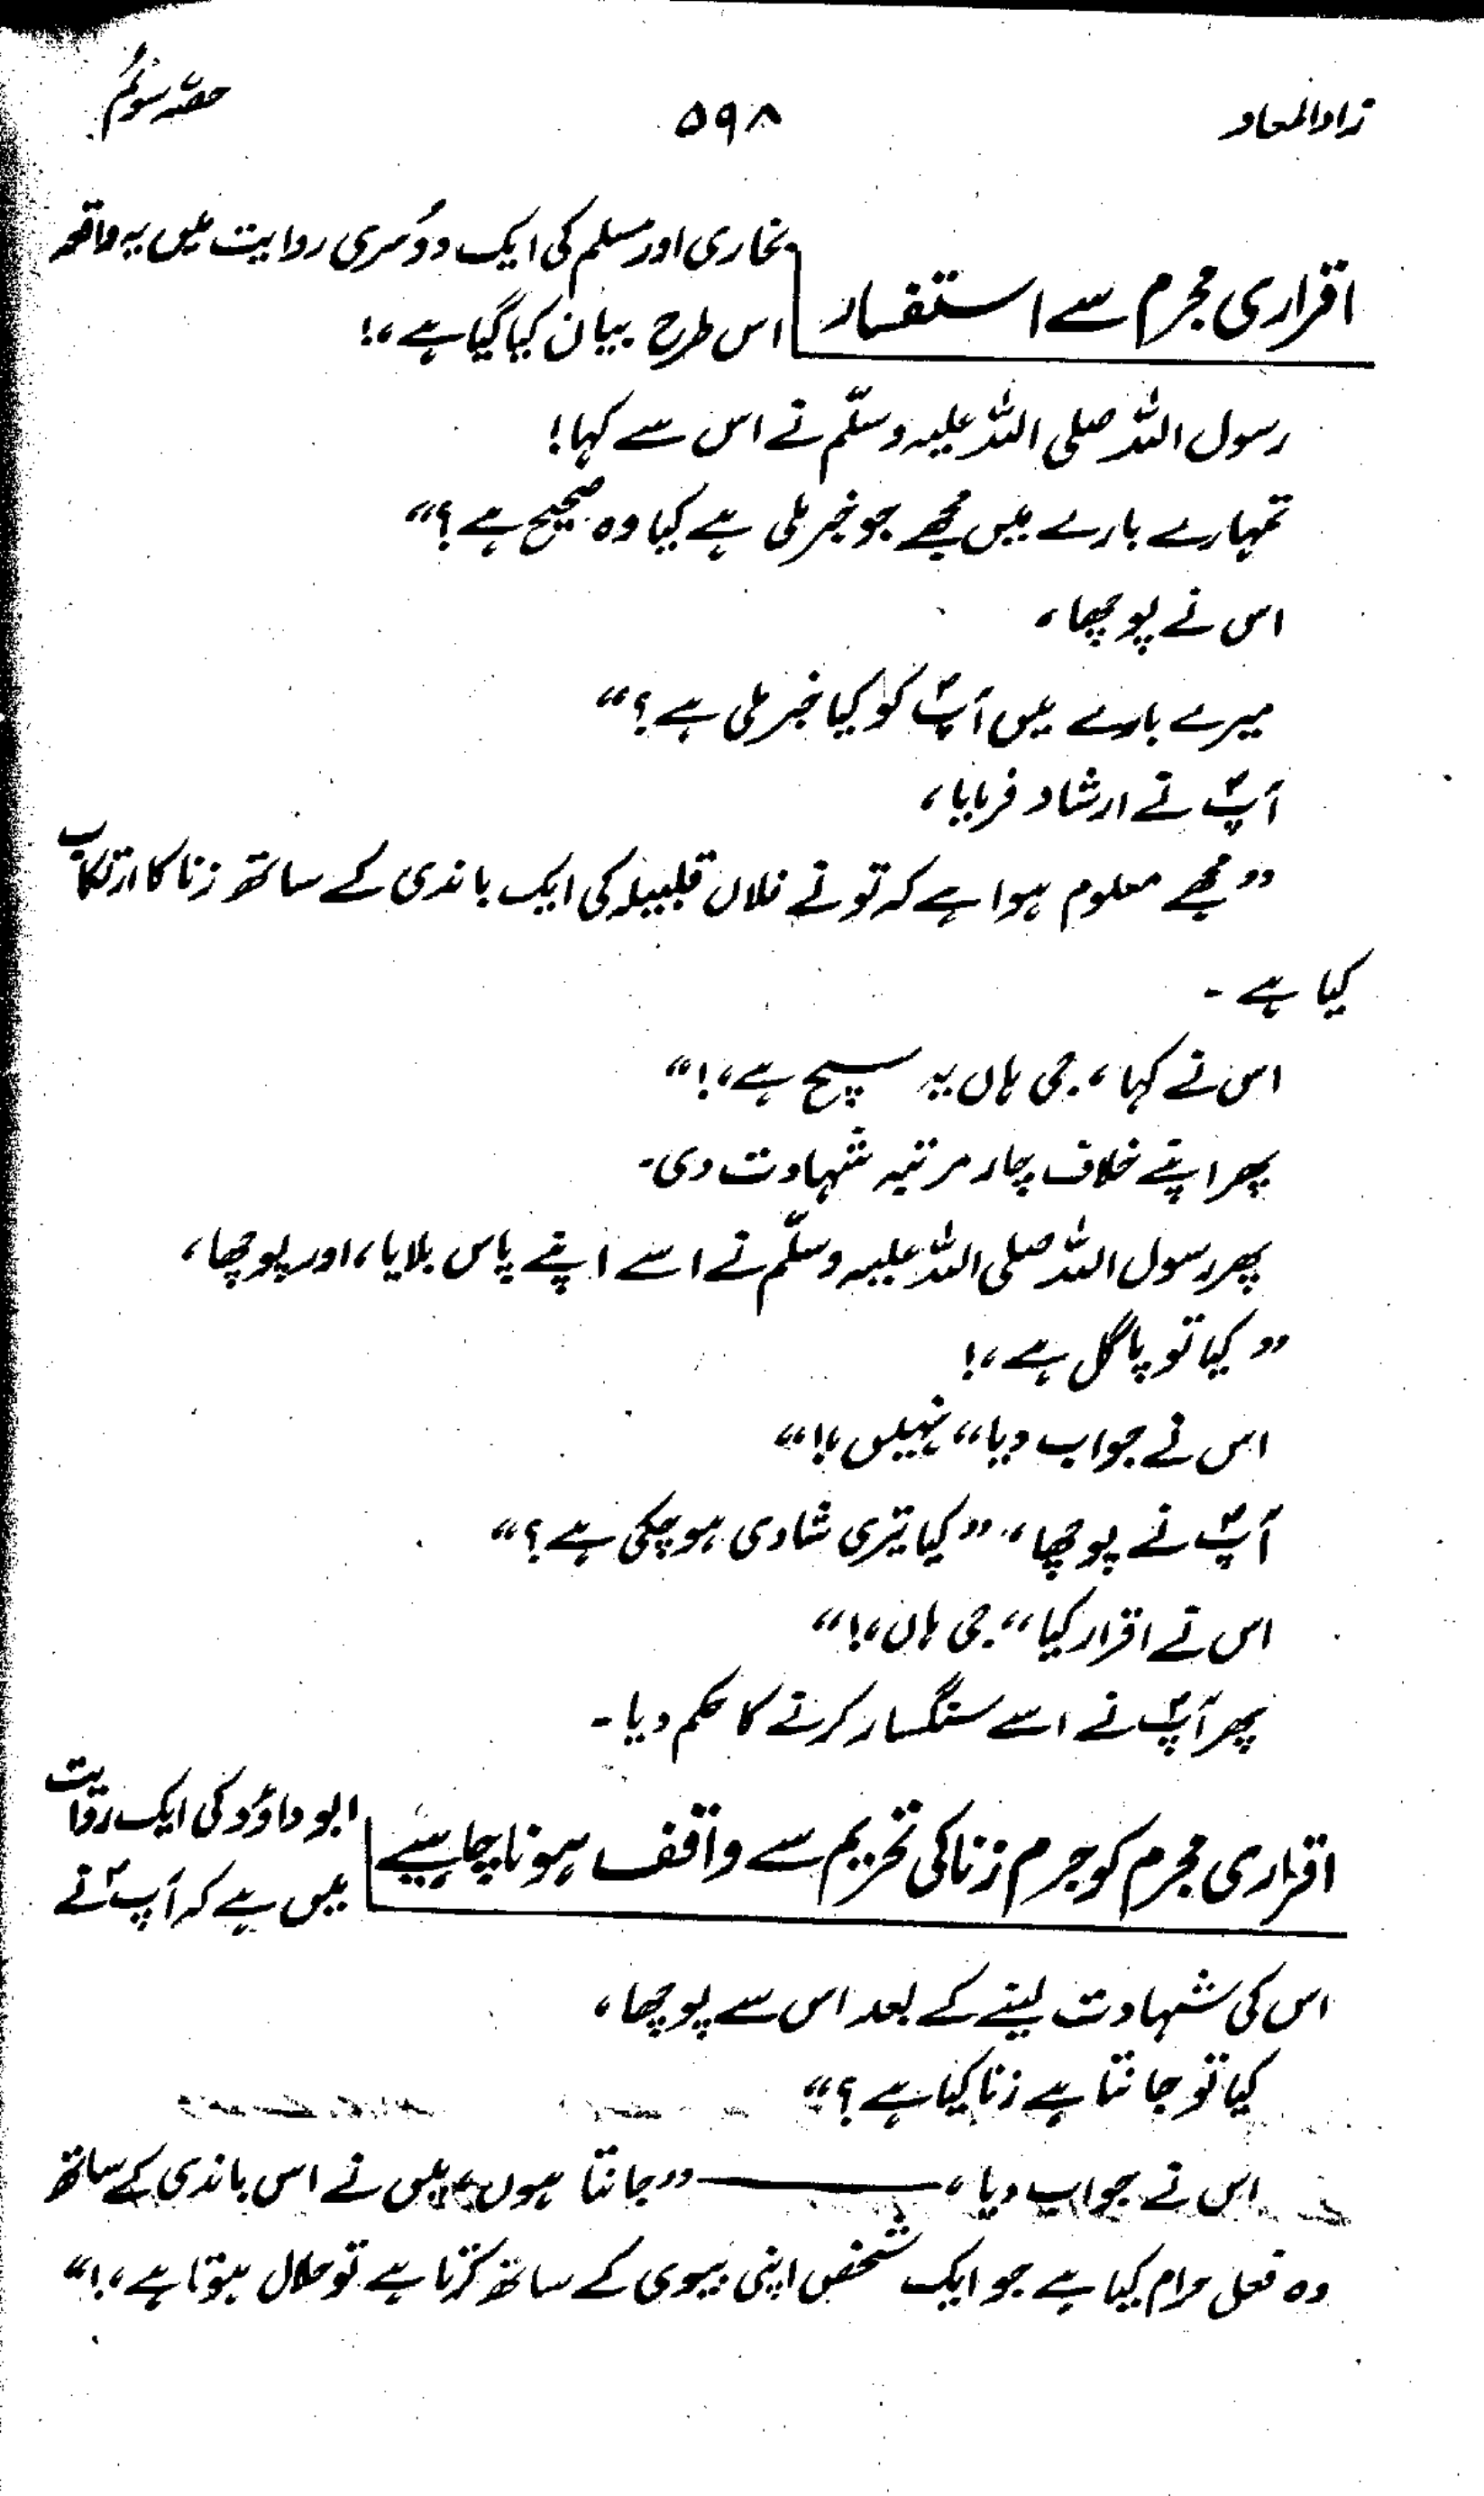 زادالمعاد ۵۹۸ حصّہ سوئم
اقراری مجرم سے استفسار
بخاری اور مسلم کی ایک دوُسری روایت میں یہ واقعہ
اس طرح بیان کیا گیا ہے،!
رسول اللہ صلی اللہ علیہ وسلّم نے اس سے کہا!
تمہارے بارے میں مجھے جو خبر ملی ہے کیا وہ صحیح ہے؟“
اس نے پوچھا،
میرے بارے میں آپؐ کو کیا خبر ملی ہے؟“
آپؐ نے ارشاد فرمایا،
”مجھے معلوم ہوا ہے کہ تو نے فلاں قبیلہ کی ایک باندی کے ساتھ زنا کا ارتکاب
کیا ہے۔
اس نے کہا، جی ہاں یہ سچ ہے،!“
پھر اپنے خلاف چار مرتبہ شہادت دی۔
پھر رسول اللہ صلی اللہ علیہ وسلّم نے اسے اپنے پاس بلایا، اور پوچھا،
”کیا تو پاگل ہے،!
اس نے جواب دیا،، نہیں،!“
آپؐ نے پوچھا، ”کیا تیری شادی ہو چکی ہے؟“
اس نے اقرار کیا،، جی ہاں،!“
پھر آپؐ نے اسے سنگسار کرنے کا حکم دیا۔
اقراری مجرم کو جرم زنا کی تحریم سے واقف ہونا چاہیئے
ابو داؤد کی ایک روایت
میں ہے کہ آپؐ نے
اس کی شہادت لینے کے بعد اس سے پوچھا،
کیا تو جانتا ہے زنا کیا ہے؟“
اس نے جواب دیا، ——— ”جانتا ہوں، میں نے اس باندی کے ساتھ
وہ فعل حرام کیا ہے جو ایک شخص اپنی بیوی کے ساتھ کرتا ہے تو حلال ہوتا ہے،!“